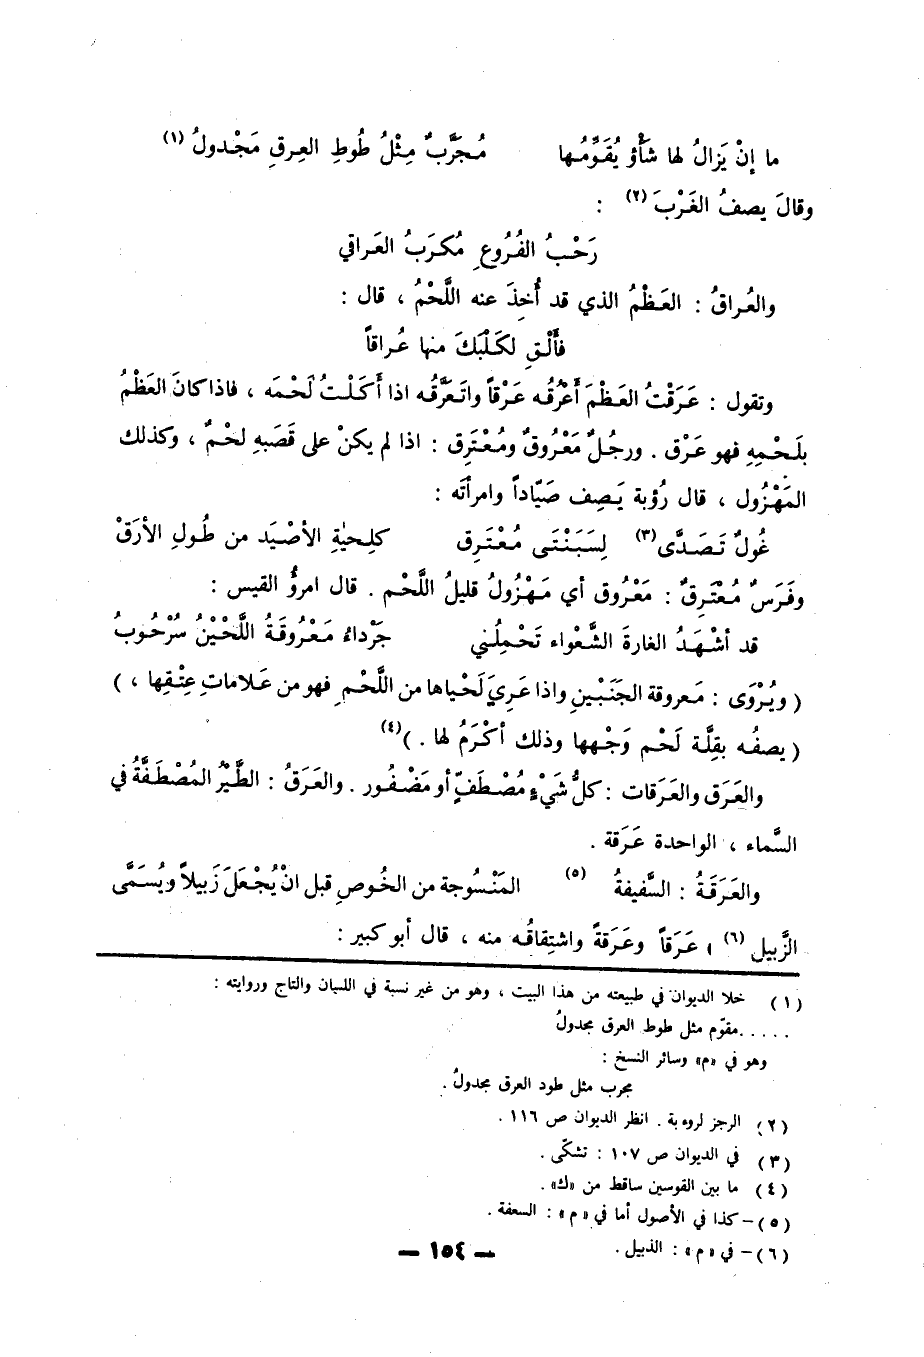 ما إنْ يَزالُ لها شَأْوٌ يُقَوِّمُها مُجَرَّبٌ مِثْلُ طُوطِ العِرقِ مَجْدولُ (١)
وقالَ يصفُ الغَرْبَ (٢) :
رَحْبُ الفُرُوعِ مُكرَبُ العَراقي
والعُراقُ : العَظْمُ الذي قد أُخِذَ عنه اللَّحْمُ ، قال :
فأَلْقِ لكَلْبَكَ منها عُراقاً
وتقول : عَرَقْتُ العَظْمَ أَعْرُقُه عَرْقاً واتَعرَّقُه اذا أَكَلْتُ لَحْمَه ، فاذا كانَ العَظْمُ
بلَحْمِهِ فهو عَرْق . ورجُلٌ مَعْروقٌ ومُعْتَرِق : اذا لم يكنْ على قَصَبهِ لحْمٌ ، وكذلك
المَهْزُول ، قال رُؤبة يَصِف صَيّاداً وامرأتَه :
غُولٌ تَصَدَّى (٣) لِسَبَنْتَى مُعْتَرِق كلِحيْةِ الأصْيَد من طُولِ الأرَقْ
وفَرَسٌ مُعْتَرِقٌ : مَعْرُوق أي مَهْزُولُ قليلُ اللَّحْم . قال امرؤُ القيس :
قد أشْهَدُ الغارةَ الشَّعْواء تَحْمِلُني جَرْداءُ مَعْروقَةُ اللَّحْيْنُ سُرْحُوبُ
( ويُرْوَى : مَعروقة الجَنَبْينِ واذا عَرِيَ لَحْياها من اللَّحْمِ فهو من عَلاماتِ عِتْقِها ، )
( يصفُه بقِلَّة لَحْم وَجْهها وذلك أكْرَمُ لها . )(٤)
والعَرَق والعَرَقات : كلُّ شَيْءٍ مُصْطَفٍّ أو مَضْفُور . والعَرَقُ : الطَّيْرُ المُصْطَفَّةُ في
السَّماء ، الواحدة عَرَقة .
والعَرَقَةُ : السَّفيفةُ (٥) المَنْسُوجة من الخُوصِ قبل انْ يُجْعَلَ زَبيلاً ويُسَمَّى
الزَّبيل (٦) ، عَرَقاً وعَرَقةً واشتِقاقُه منه ، قال أبو كبير :
(١) خلا الديوان في طبيعته من هذا البيت ، وهو من غير نسبة في اللسان والتاج وروايته :
. . . . . مقوّم مثل طوط العرق مجدولُ
وهو في «م» وسائر النسخ :
مجرب مثل طود العرق مجدولُ .
(٢) الرجز لروءبة . انظر الديوان ص ١١٦ .
(٣) في الديوان ص ١٠٧ : تشكّى .
(٤) ما بين القوسين ساقط من «ك» .
(٥) – كذا في الأصول أما في « م » : السعفة .
(٦) – في « م » : الذبيل .
— ١٥٤ —